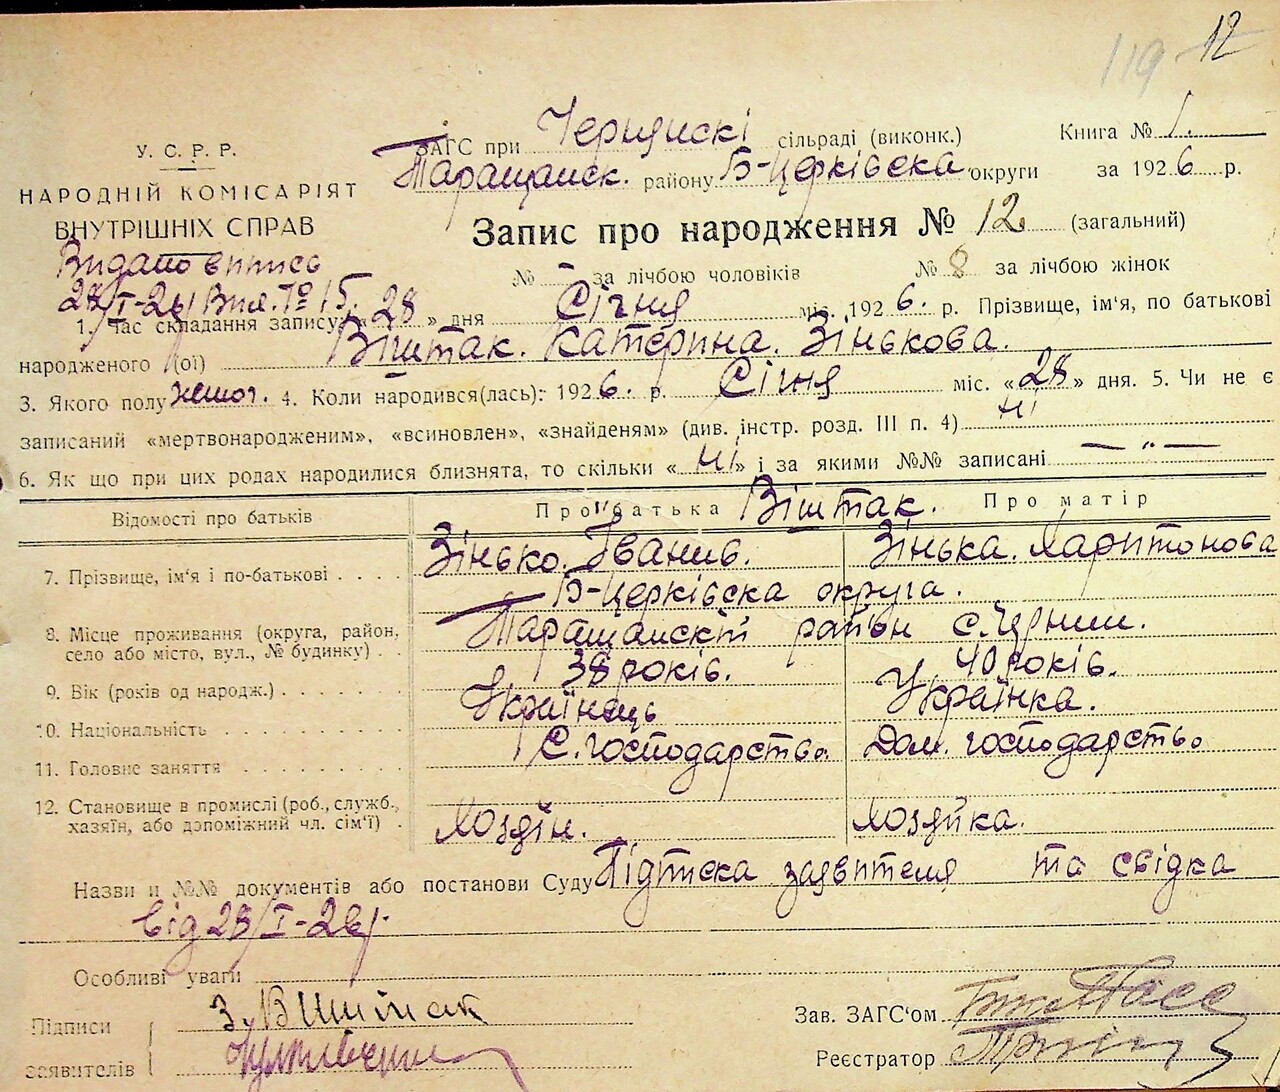 119 12
У. С. Р. Р.
НАРОДНІЙ КОМІСАРІЯТ
ВНУТРІШНІХ СПРАВ
Видано випись
28/I-26 Вип. № 15.
ЗАГС при Чернинскі сільраді (виконк.) Книга № 1.
Таращанск. району Б-Церківска округи за 1926 р.
Запис про народження № 12 (загальний)
№ – за лічбою чоловіків № 8 за лічбою жінок
1. Час складання запису « 28 » дня Січня міс. 1926. р. Прізвище, ім'я, по батькові
народженого (ої) Віштак. Катерина. Зінькова.
3. Якого полу жіноч. 4. Коли народився(лась): 1926. р. Січня міс. «28» дня. 5. Чи не є
записаний «мертвонародженим», «всиновлен», «знайденям» (див. інстр. розд. III п. 4) Ні
6. Як що при цих родах народилися близнята, то скільки « Ні » і за якими №№ записані — „ —
Відомості про батьків Про батька Віштак. Про матір
7. Прізвище, ім'я і по-батькові Зінько. Іванив. Зінька. Харитонова
8. Місце проживання (округа, район, село або місто, вул., № будинку) Б-Церківска округа.
Таращанскій район с. Чернин.
9. Вік (років од народж.) 38 років. 40 років.
10. Національність Українець Українка.
11. Головне заняття С. господарство. Дом. господарство
12. Становище в промислі (роб., служб., хазяїн, або допоміжний чл. сім'ї) Хозяїн. Хозяйка.
Назви и №№ документів або постанови Суду Підписка заявителя та свідка
від 28/I-26 р.
Особливі уваги
Підписи заявителів З. Вишітак
Зав. ЗАГС'ом
Реєстратор